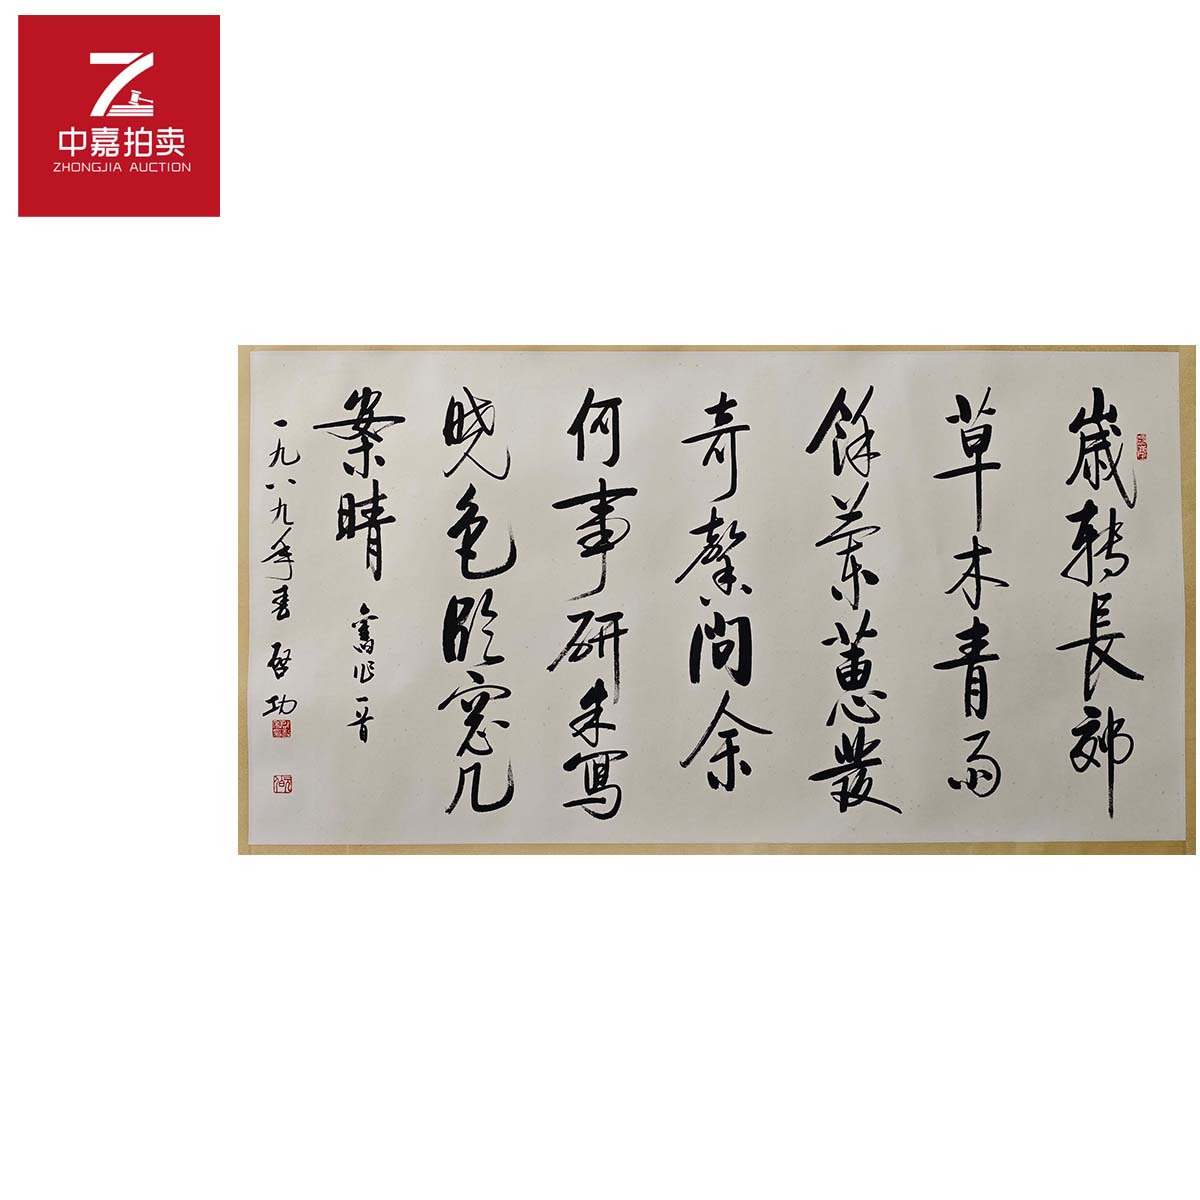 中嘉拍卖
ZHONGJIA AUCTION
歲轉長郊
草木青雨
餘蘭蕙發
奇馨問余
何事研朱寫
曉色臨窗几
案晴 舊作一首
一九八九年春 啓功